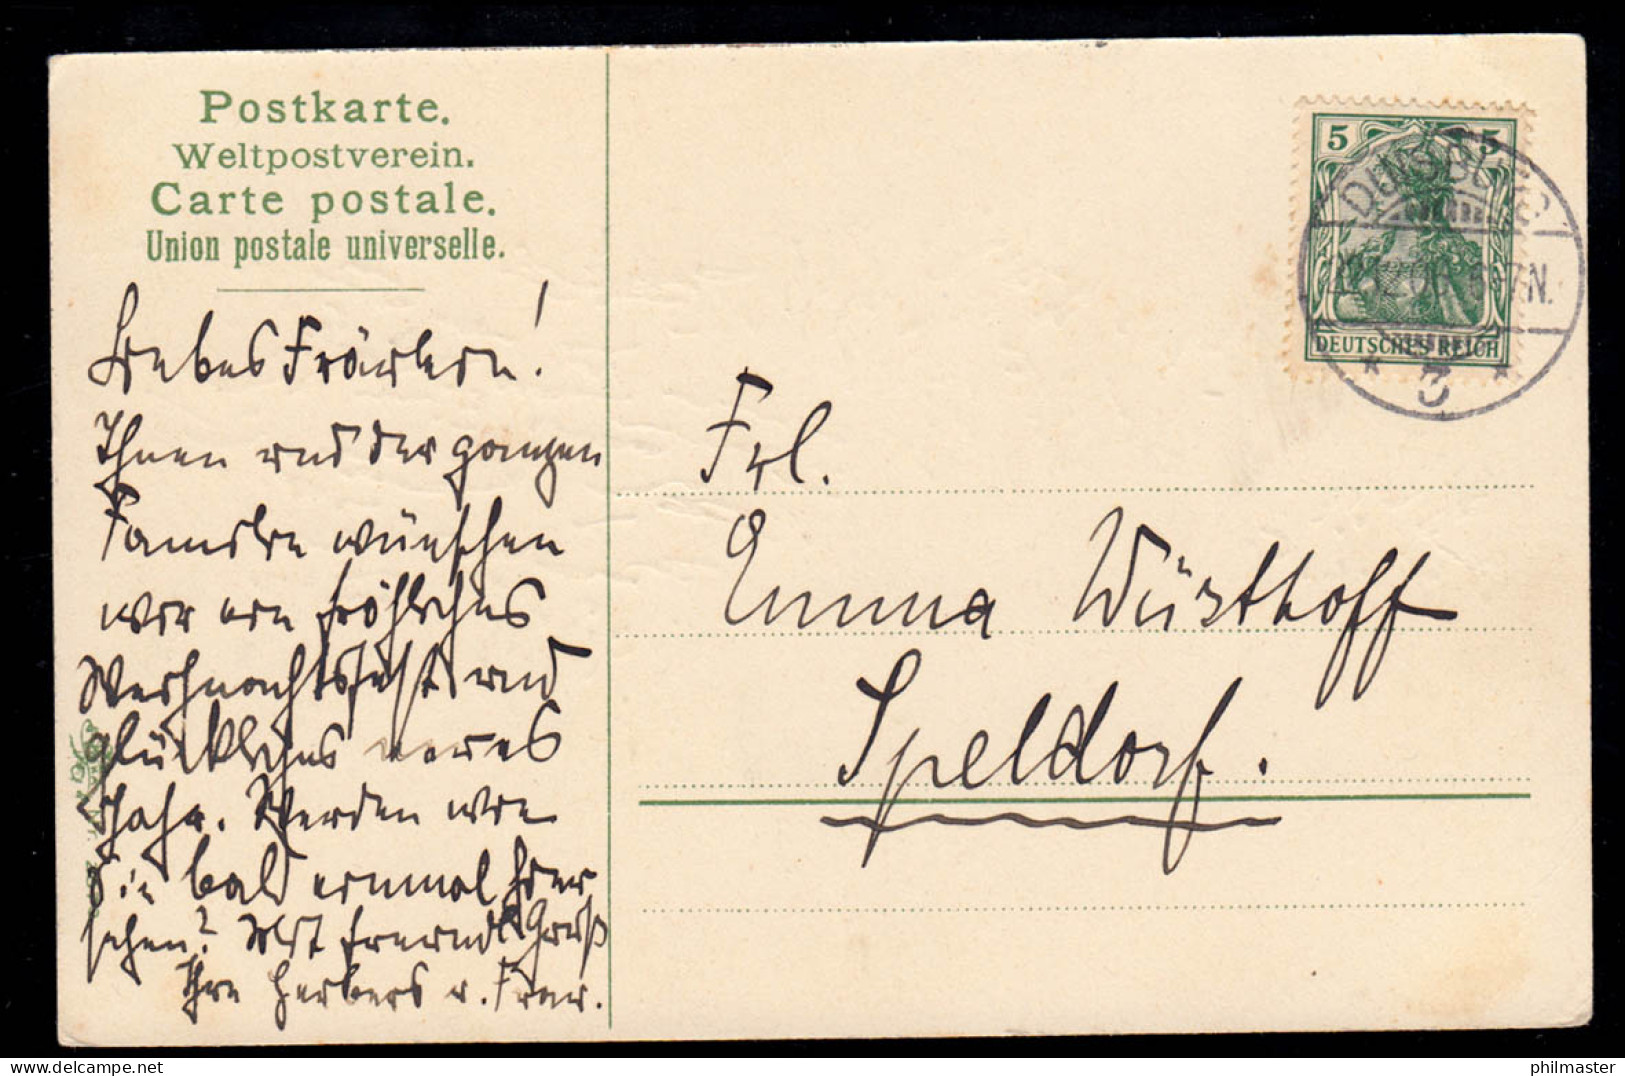 Postkarte.
Weltpostverein.
Carte postale.
Union postale universelle.
Liebes Fräulein!
Ihnen und der ganzen
Familie wünschen
wir ein fröhliches
Weihnachtsfest und
glückliches neues
Jahr. Werden wir
Sie bald einmal hier
sehen? Mit freundl. Gruß
Ihre Herbers u. Frau.
5 5
DEUTSCHES REICH
DUISBURG
5-7N.
* 3 *
Frl.
Emma Wüsthoff
Speldorf.
delcampe.net
philmaster